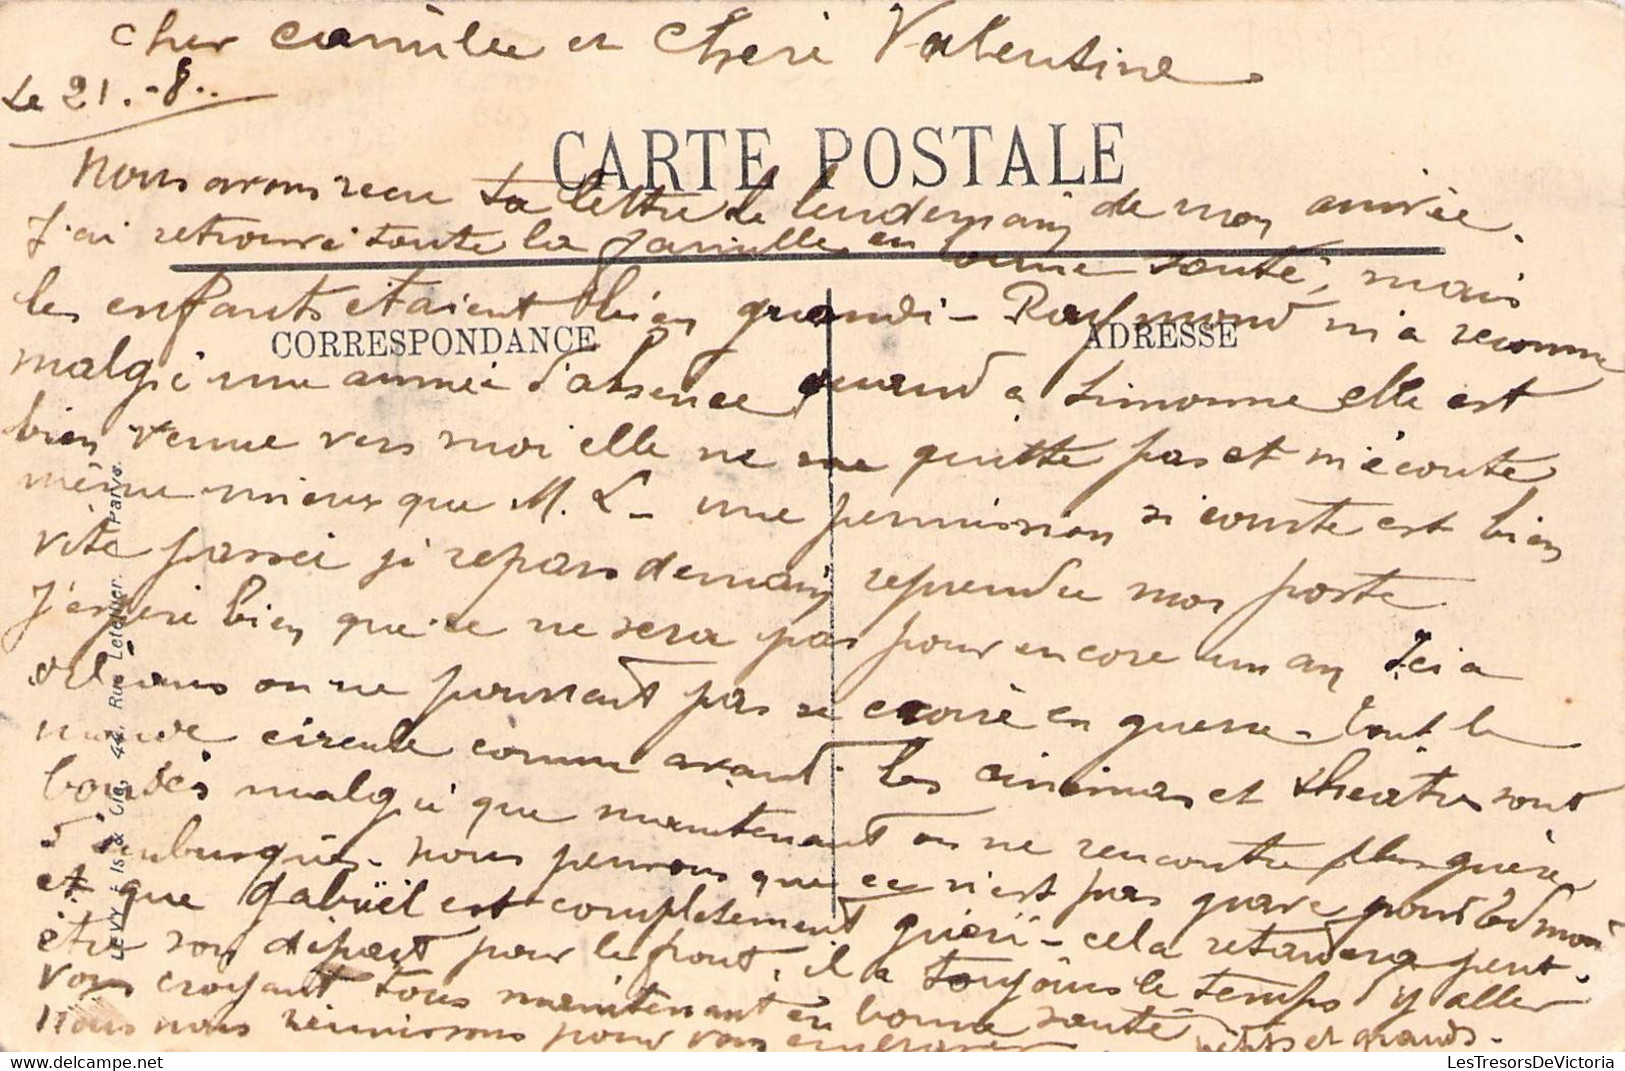 Cher Camille et Chere Valentine
Le 21.-8..
CARTE POSTALE
Nous avons recu ta lettre le lendemain de mon arrivée.
J'ai retrouvé toute la famille en bonne santé, mais
les enfants etaient bien grandi - Raymond m'a reconnu
CORRESPONDANCE
ADRESSE
malgré une année d'absence quand a Simonne elle est
bien venue vers moi elle ne me quitte pas et m'écoute
même mieux que M. L - une permission si courte est bien
vite passée je repars demain reprendre mon poste
J'espere bien que ce ne sera pas pour encore un an Ici a
Orléans on ne pourrait pas se croire en guerre - tout le
monde circule comme avant. les cinémas et theatres sont
bondés malgré que maintenant on ne rencontre plus guère
d'embusqués - nous pensons que ce n'est pas grave pour Edmond
et que Gabriël est completement guéri - cela retardera peut
être son départ pour le front, il a toujours le temps d'y aller
Vous croyant tous maintenant en bonne santé
Nous nous réunissons pour vous embrasser petits et grands.
LEVY Fils & Cie, 44, Rue Letellier. Paris.
LesTresorsDeVictoria